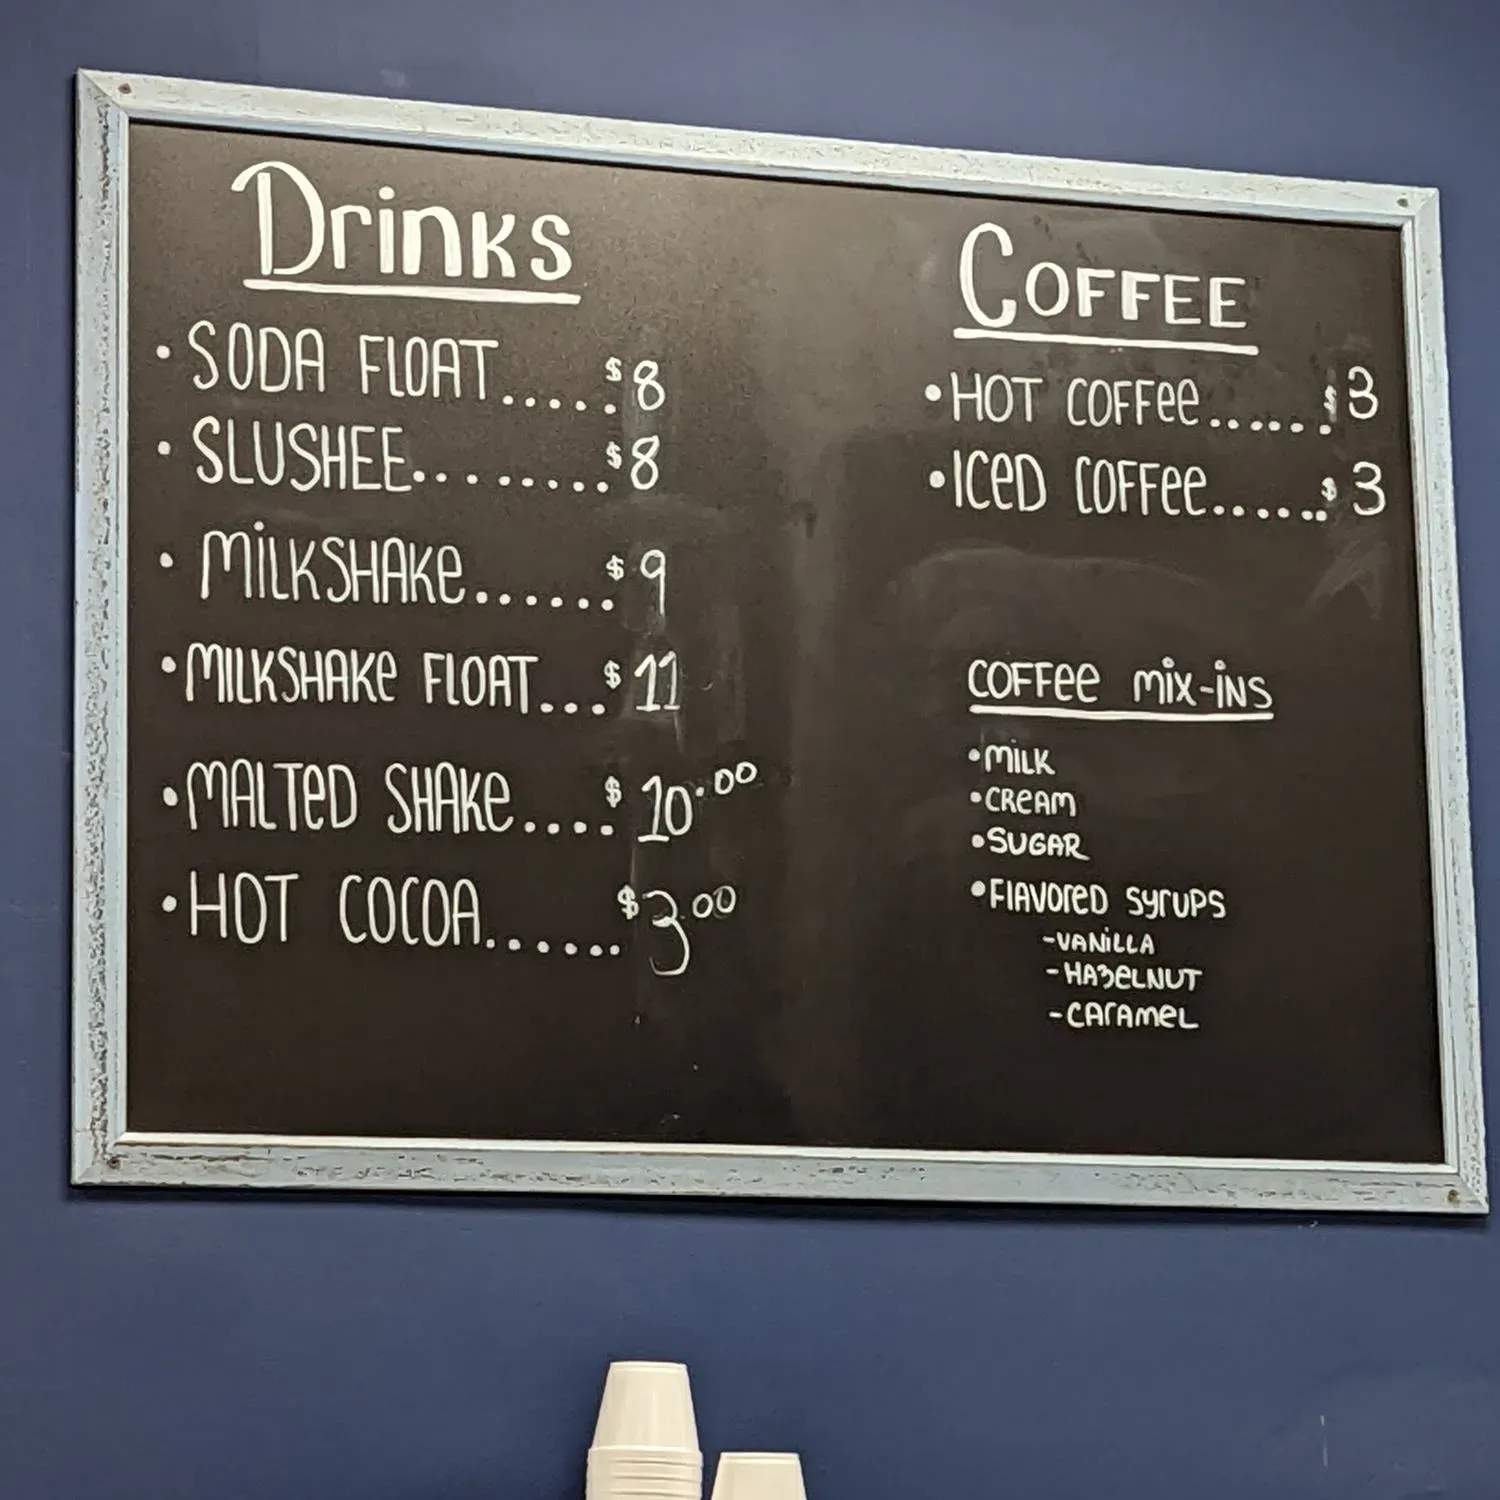 Drinks
• SODA FLOAT......$8
• SLUSHEE.........$8
• MILKSHAKE......$9
• MILKSHAKE FLOAT...$11
• MALTED SHAKE....$10.00
• HOT COCOA......$3.00
COFFEE
• HOT COFFEE......$3
• ICED COFFEE......$3
COFFEE MIX-INS
• MILK
• CREAM
• SUGAR
• FLAVORED SYRUPS
-VANILLA
-HAZELNUT
-CARAMEL